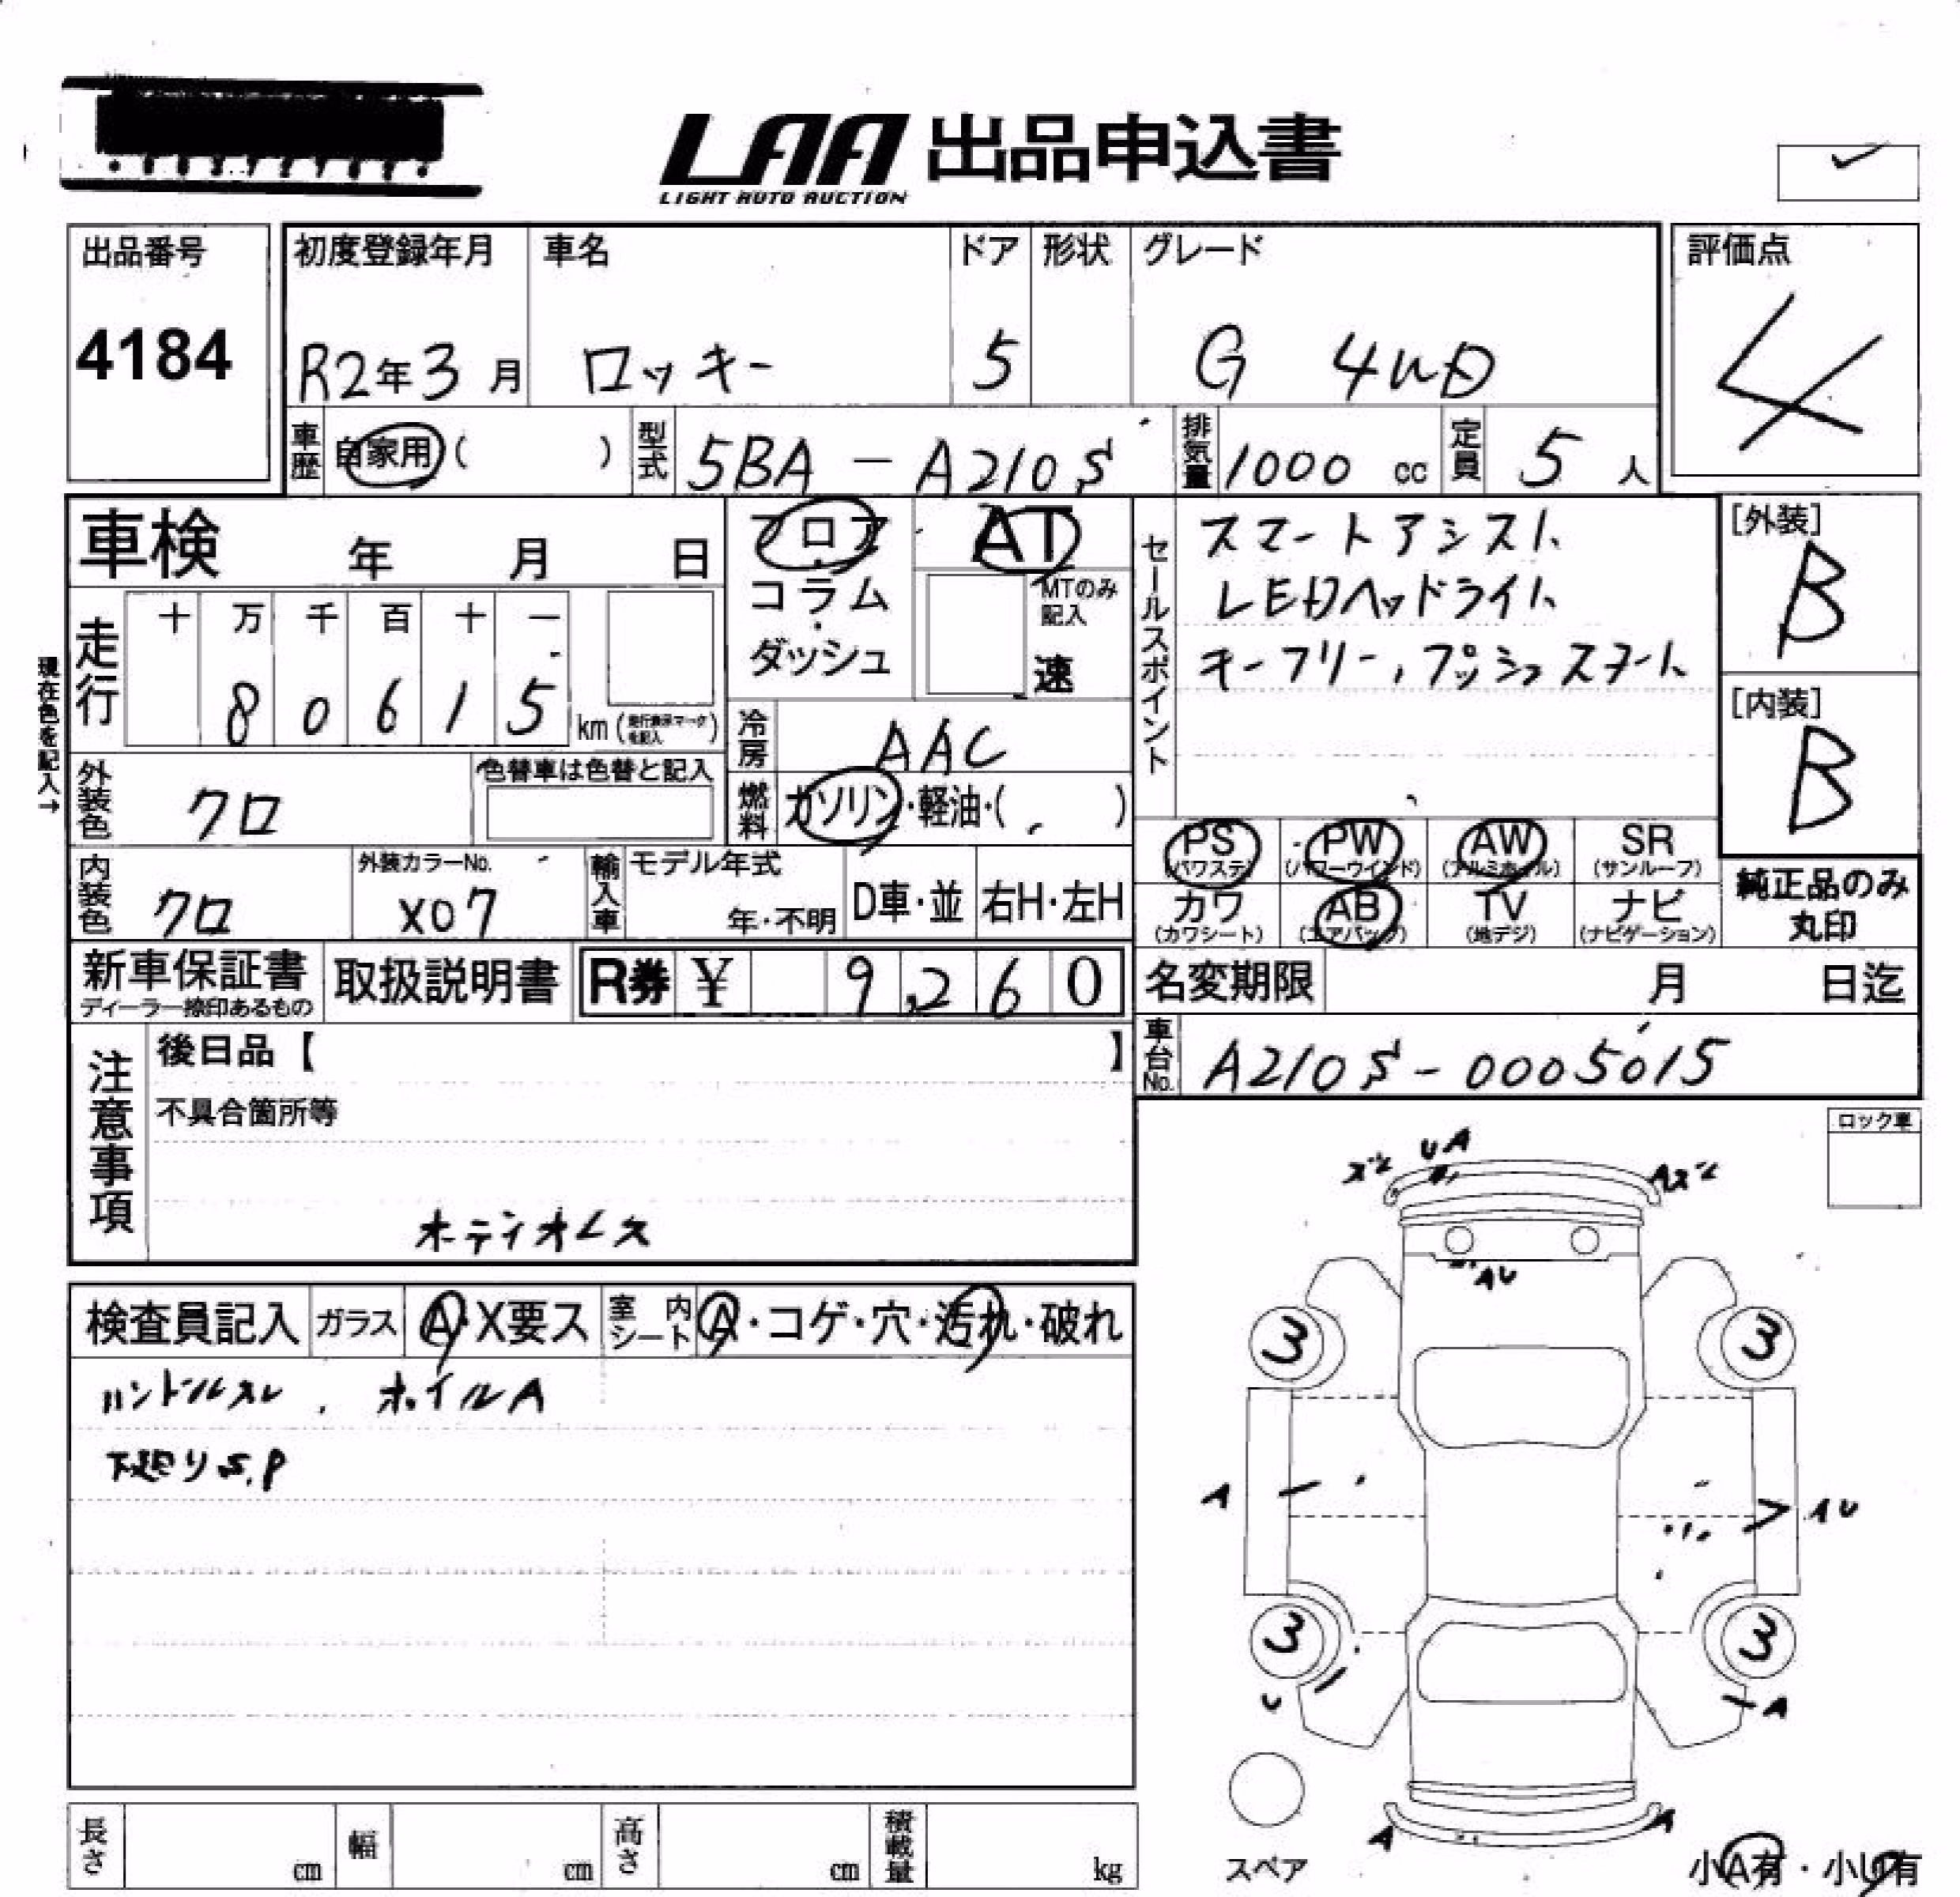 LAA 出品申込書
LIGHT AUTO AUCTION
出品番号
4184
初度登録年月 車名 ドア 形状 グレード
R2年3月 ロッキー 5 G 4WD
評価点
4
車歴 自家用( ) 型式 5BA-A210S 排気量 1000 cc 定員 5人
車検 年 月 日
フロア・コラム・ダッシュ
AT
MTのみ記入
速
セールスポイント
スマートアシスト
LEDヘッドライト
キーフリー,プッシュスタート
[外装]
B
[内装]
B
現在色を記入→
走行 十 万 千 百 十 一
8 0 6 1 5 km(走行表示マークを記入)
冷房 AAC
外装色 クロ 色替車は色替と記入
燃料 ガソリン・軽油・( )
PS AW PW SR
(パワステ) (パワーウインド) (アルミホイル) (サンルーフ)
カワ AB TV ナビ
(カワシート) (エアバッグ) (地デジ) (ナビゲーション)
純正品のみ丸印
内装色 クロ 外装カラーNo. X07
輸入車 モデル年式 年・不明 D車・並 右H・左H
新車保証書 取扱説明書 R券 ¥ 9,260
ディーラー捺印あるもの
名変期限 月 日迄
車台No. A210S-0005015
注意事項
後日品【 】
不具合箇所等
ホディオレス
ロック車
検査員記入 ガラス A・X要ス 室内シート A・コゲ・穴・汚れ・破れ
ハンドルスレ、ホイルA
下廻りS.P
UA
ズレ
Aズレ
AU
3 3
A
AU
3 3
U
A
A
A
スペア
小A有・小U有
長さ cm 幅 cm 高さ cm 積載量 kg